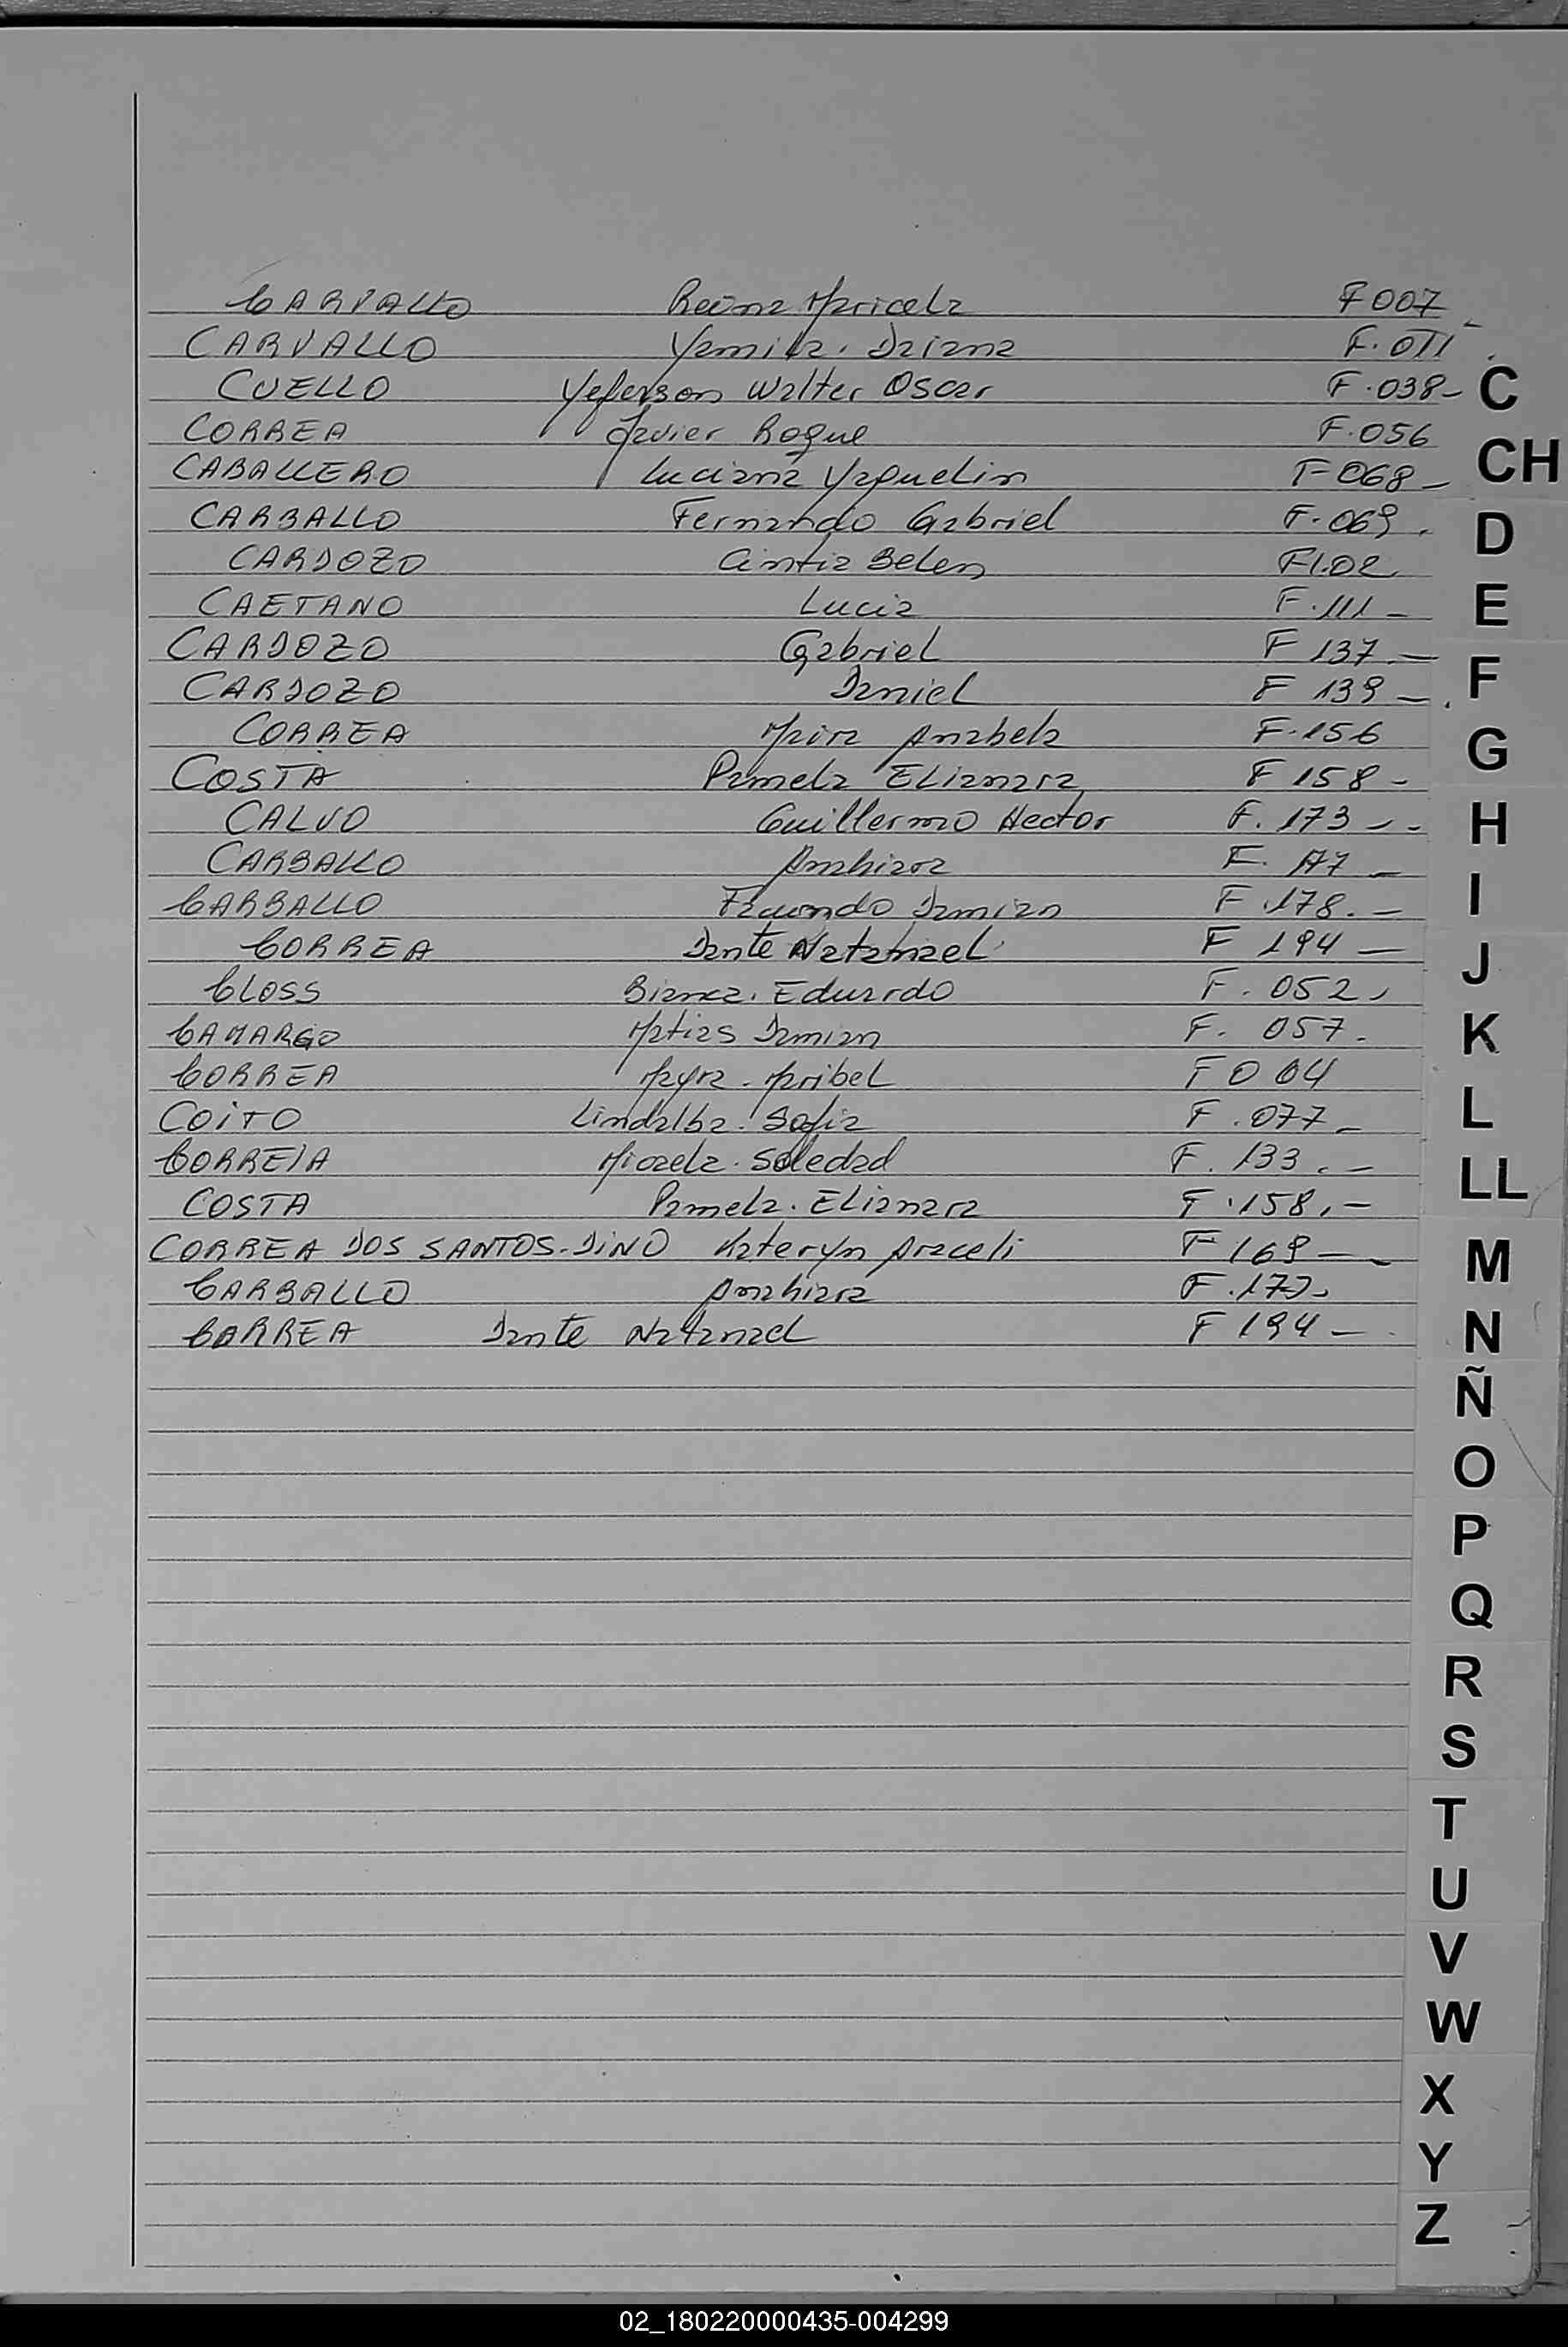 CARVALLO Reina Maricela F 007
CARVALLO Yamila. Daiana F. 011
CUELLO Yeferson Walter Oscar F. 038-
CORREA Javier Roque F. 056
CABALLERO Luciana Yaquelin F 068-
CARBALLO Fernando Gabriel F. 069.
CARDOZO Cintia Belen F1.02
CAETANO Lucia F. 111-
CARDOZO Gabriel F 137.-
CARDOZO Daniel F 139-.
CORREA Maira Anabela F. 156
COSTA Pamela Elianara F 158-
CALVO Guillermo Hector F. 173--
CARBALLO Anahiara F. 177-
CARBALLO Facundo Damian F. 178.-
CORREA Dante Natanael F 194-
CLOSS Bianca. Eduardo F. 052
CAMARGO Matias Damian F. 057.
CORREA Mayra. Maribel F 0 64
COITO Lindalba. Sofia F. 077-
CORREIA Micaela. Soledad F. 133.-
COSTA Pamela. Elianara F. 158.-
CORREA DOS SANTOS-DINO Kateryn Araceli F 169-
CARBALLO Anahiara F. 177.
CORREA Dante Natanael F 194-
C
CH
D
E
F
G
H
I
J
K
L
LL
M
N
Ñ
O
P
Q
R
S
T
U
V
W
X
Y
Z
02_180220000435-004299